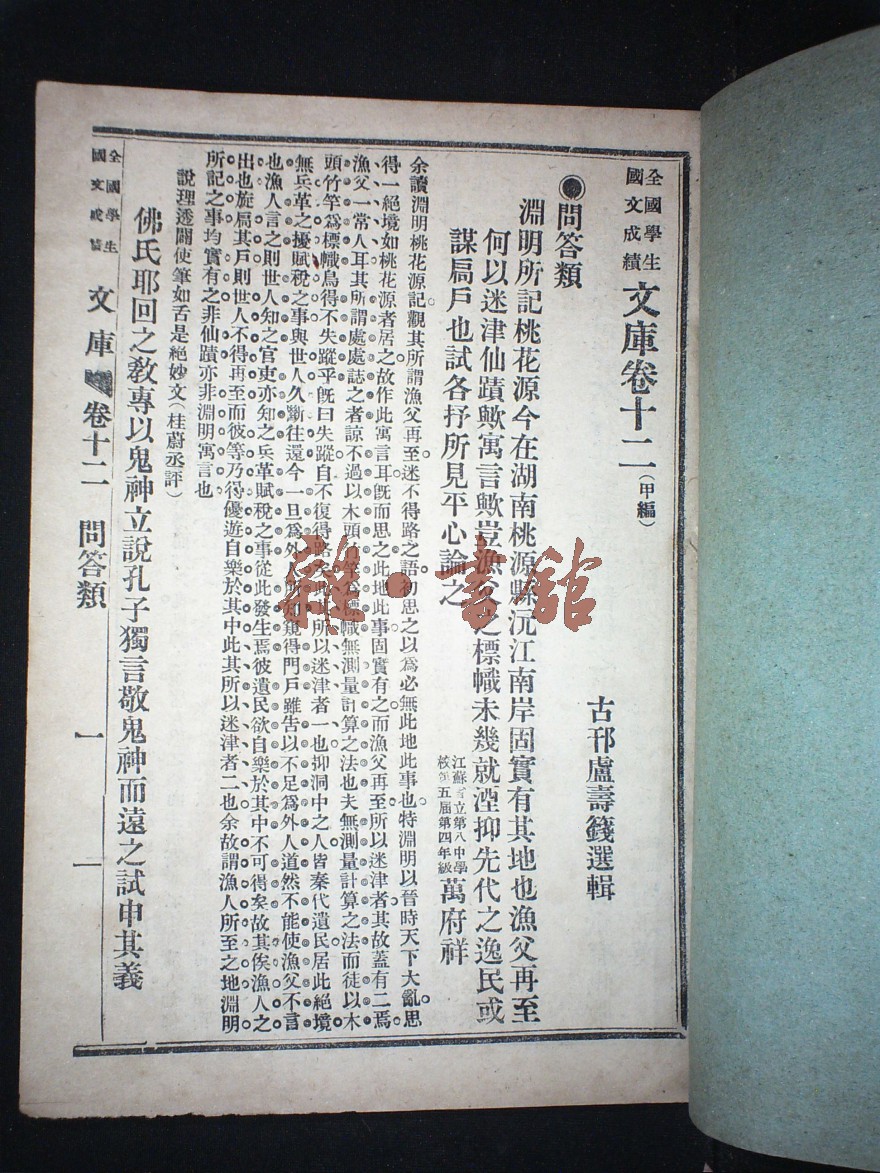 全國學生國文成績文庫卷十二（甲編）
古邗盧壽籛選輯
●問答類
淵明所記桃花源今在湖南桃源縣沅江南岸固實有其地也漁父再至
何以迷津仙蹟歟寓言歟豈漁父之標幟未幾就湮抑先代之逸民或
謀扃戶也試各抒所見平心論之
江蘇省立第八中學校第五屆第四年級 萬府祥
余讀淵明桃花源記觀其所謂漁父再至迷不得路之語初思之以爲必無此地此事也特淵明以晉時天下大亂思
得一絕境如桃花源者居之故作此寓言耳旣而思之此地此事固實有之而漁父再至所以迷津者其故蓋有二焉
漁父一常人耳其所謂處處誌之者諒不過以木頭竹竿爲標幟無測量計算之法也夫無測量計算之法而徒以木
頭竹竿爲標幟烏得不失蹤乎旣曰失蹤自不復得路矣此所以迷津者一也抑洞中之人皆秦代遺民居此絕境
無兵革之擾賦稅之事與世人久斷往還今一旦爲外人所知窺得門戶雖告以不足爲外人道然不能使漁父不言
也漁人言之則世人知之官吏亦知之兵革賦稅之事從此發生焉彼遺民欲自樂於其中不可得矣故其俟漁人之
出也旋扃其戶則世人不得再至而彼等乃得優遊自樂於其中此其所以迷津者二也余故謂漁人所至之地淵明
所記之事均實有之非仙蹟亦非淵明寓言也
說理透闢使筆如舌是絕妙文（桂蔚丞評）
佛氏耶回之敎專以鬼神立說孔子獨言敬鬼神而遠之試申其義
全國學生國文成績 文庫 卷十二 問答類 一 一
雜·書館